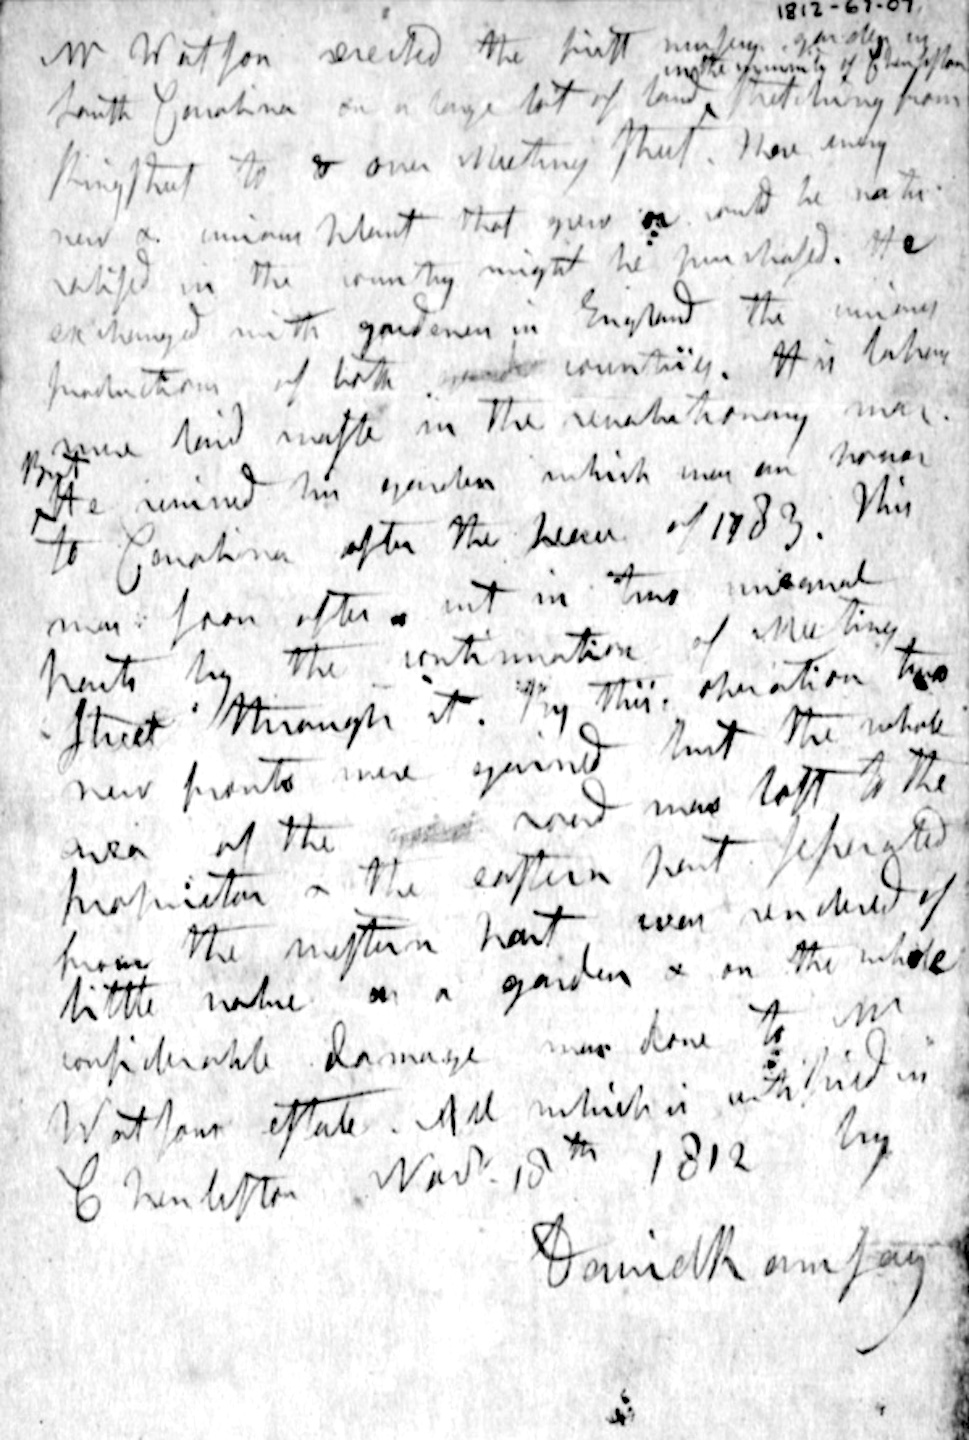 1812-67-07
Mr Watson erected the first nursery garden in
in the vicinity of Charleston
South Carolina on a large lot of land stretching from
Kingstreet to & over Meeting Street. Here every
new & curious plant that grew or could be natu-
ralised in the country might be purchased. He
exchanged with gardeners in England the curious
productions of both countries. His labors
were laid waste in the revolutionary war.
But
He revived his garden which was an honor
to Carolina after the peace of 1783. This
was soon after cut in two unequal
parts by the continuation of Meeting
Street through it. By this operation two
new fronts were gained but the whole
area of the road was lost to the
proprietor & the eastern part seperated
from the western part was rendered of
little value as a garden & on the whole
considerable damage was done to Mr
Watsons estate. All which is certified in
Charleston Novr. 18th 1812 by
David Ramsay